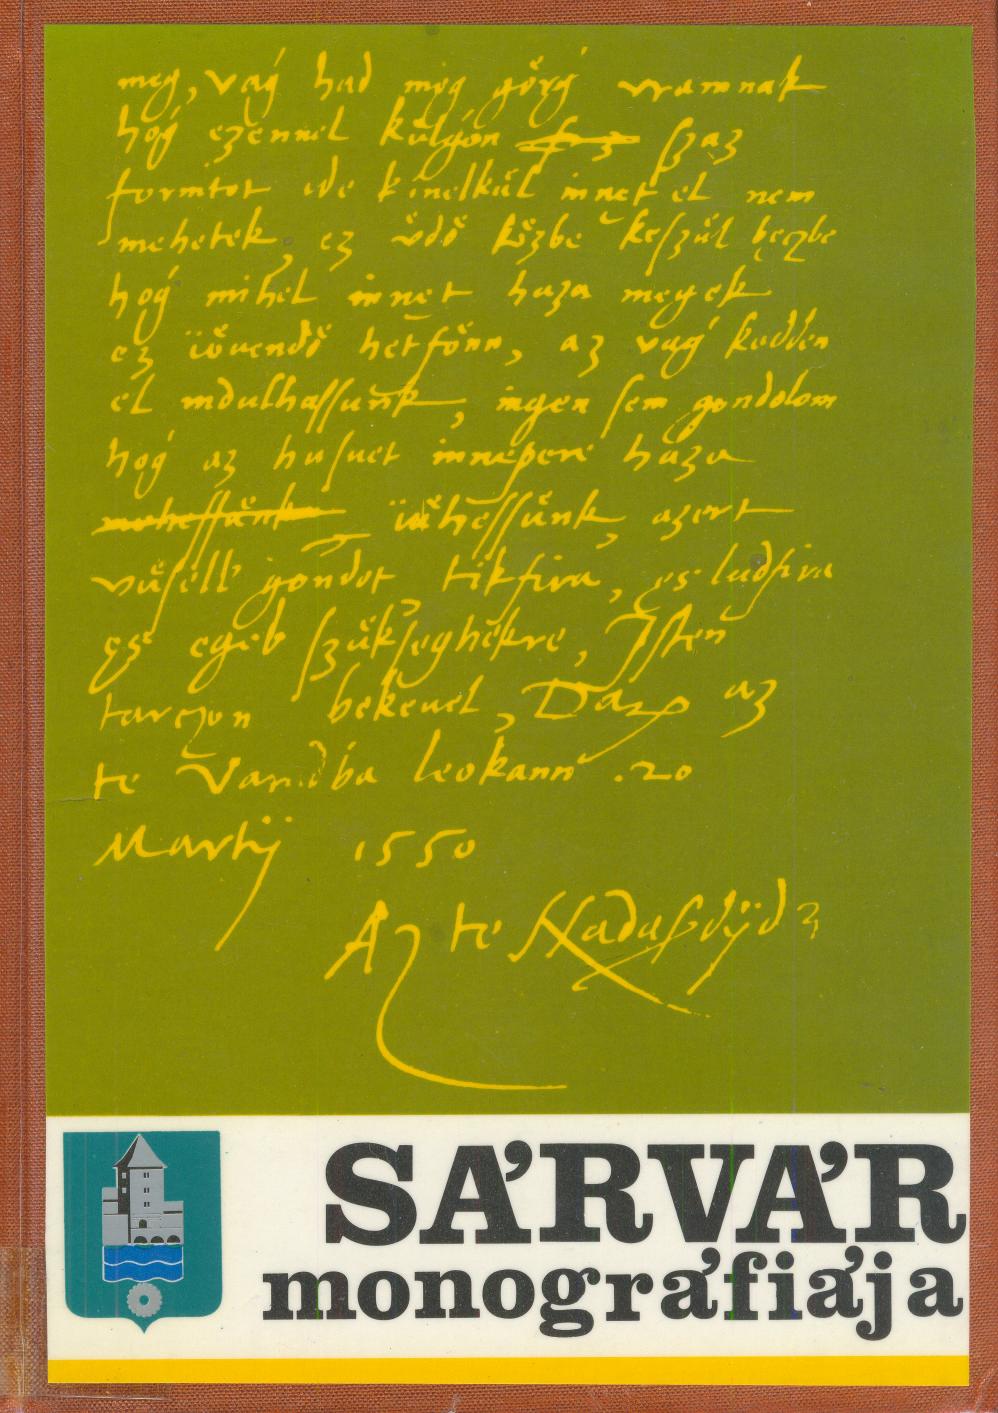 meg, vág had meg görg vramnak
hog ezennel külgön szaz
formtot ide kinelkül innet el nem
mehetek, ez üdö közbe keszül
hog mihel innet haza megek
ez iövendö hetfönn, az vag kedden
el indulhassunk, ingen sem gondolom
hog az husuet innepere haza
iühessünk, azert
vüsell' gondot tikfira, es ludfira
es egeb szükseghekre, Isten
tarczon bekeuel, az
te leokann .20
Martij 1550
Az te
SÁRVÁR
monográfiája